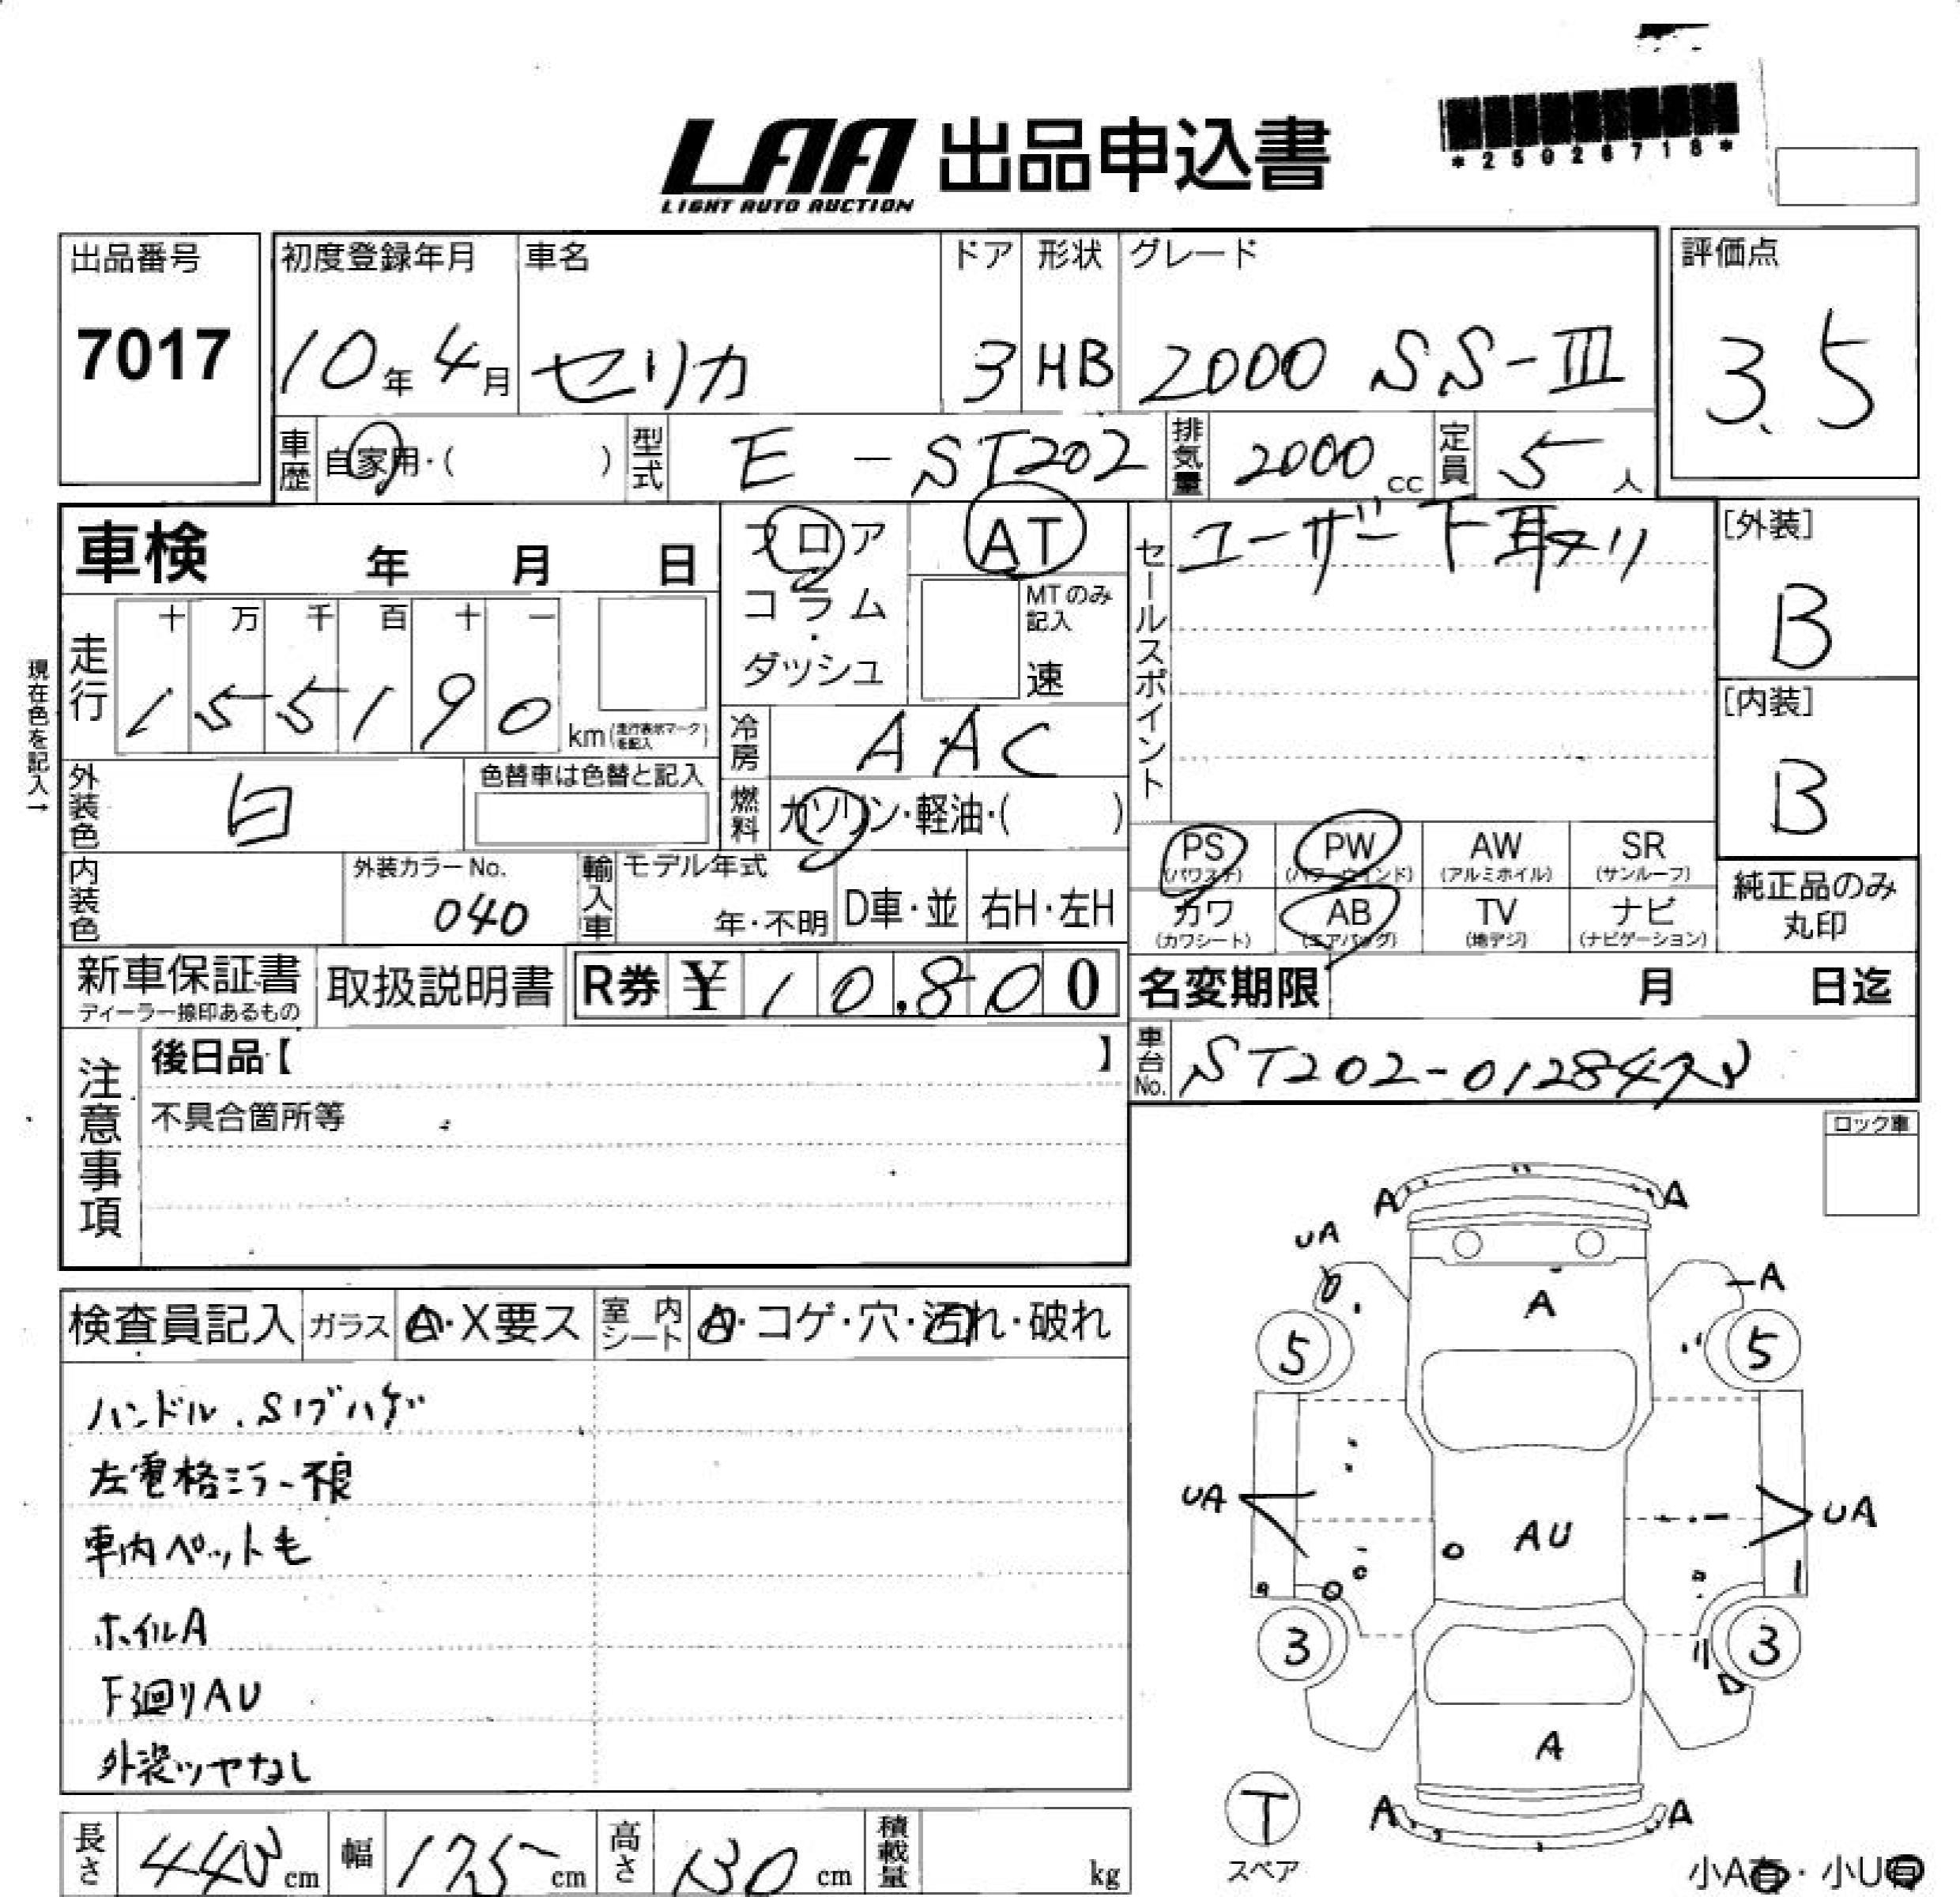 LAA 出品申込書
LIGHT AUTO AUCTION
*25026718*
出品番号
7017
初度登録年月 車名 ドア 形状 グレード 評価点
10年 4月 セリカ 3 HB 2000 SS-III 3.5
車歴 自家用・( ) 型式 E-ST202 排気量 2000cc 定員 5人
車検 年 月 日
フロア
コラム
・
ダッシュ
AT
MTのみ
記入
速
セールスポイント ユーザー下取り
[外装]
B
[内装]
B
現在色を記入→
走行 十 万 千 百 十 一
1 5 5 1 9 0 km(走行表示マークを記入)
冷房 AAC
外装色 白 色替車は色替と記入
燃料 ガソリン・軽油・( )
PS PW AW SR
(パワステ) (パワーウインド) (アルミホイル) (サンルーフ)
カワ AB TV ナビ
(カワシート) (エアバッグ) (地デジ) (ナビゲーション)
純正品のみ
丸印
内装色 外装カラーNo. 040
輸入車 モデル年式 年・不明 D車・並 右H・左H
新車保証書
ディーラー捺印あるもの
取扱説明書 R券 ¥ 10.800
名変期限 月 日迄
車台No. ST202-01284
注意事項
後日品【 】
不具合箇所等
ロック車
検査員記入 ガラス A・X要ス 室内シート A・コゲ・穴・汚れ・破れ
ハンドル.Sノブハゲ
左電格ミラー不良
車内ペット毛
ホイルA
下廻りAU
外装ツヤなし
A A
UA
A
A
5 5
UA AU UA
3 3
A
A A
T
スペア
小A有・小U有
長さ 443cm 幅 175cm 高さ 130cm 積載量 kg